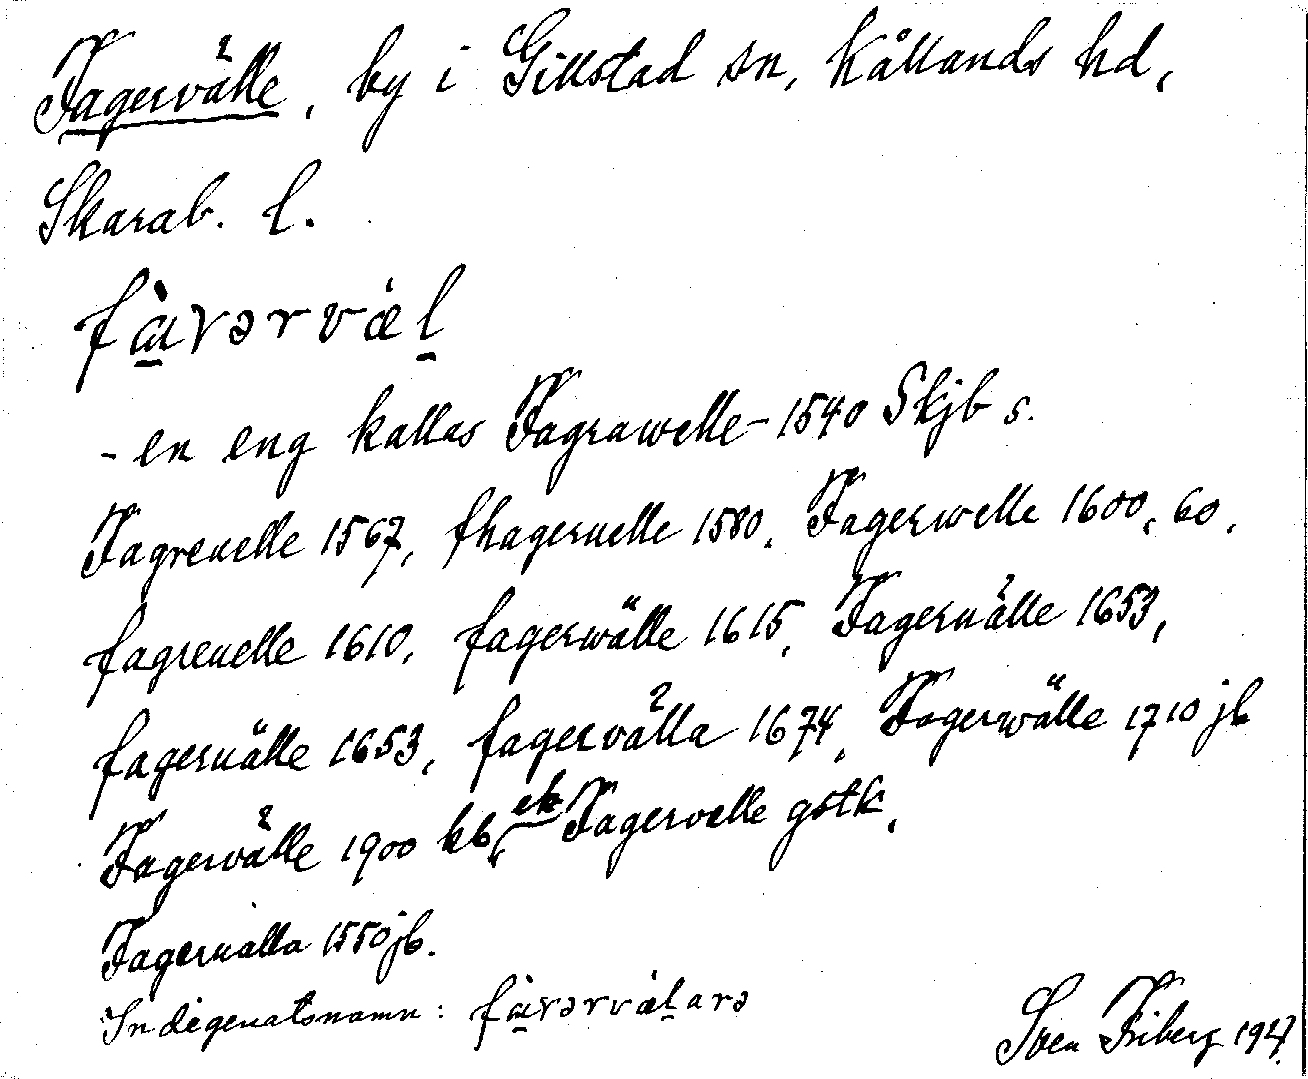 Fagervälle, by i Gillstad sn, Kållands hd,
Skarab. l.
fàɣərvæ̀l
- en eng kallas Fagrawelle - 1540 Skjb s.
Fagreuelle 1567, fhageruelle 1580, Fagerwelle 1600, 60,
fagreuelle 1610, fagerwälle 1615, Fageruälle 1653,
fageruälle 1653, fagervälla 1674, Fagerwälle 1710 jb
Fagervälle 1900 kb, ek Fagervalle gstk.
Fageruälla 1550 jb.
Indigenatsnamn: fàɣərvæ̀larə
Sven Friberg 1927.